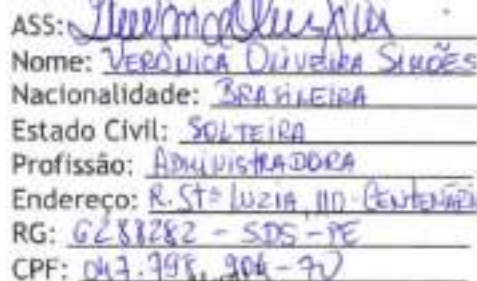 ASS:
Nome: VERÔNICA OLIVEIRA SIMÕES
Nacionalidade: BRASILEIRA
Estado Civil: SOLTEIRA
Profissão: ADMINISTRADORA
Endereço: R. STª LUZIA, 110-CENTENÁRIO
RG: 6288282 - SDS - PE
CPF: 047.798.904-70